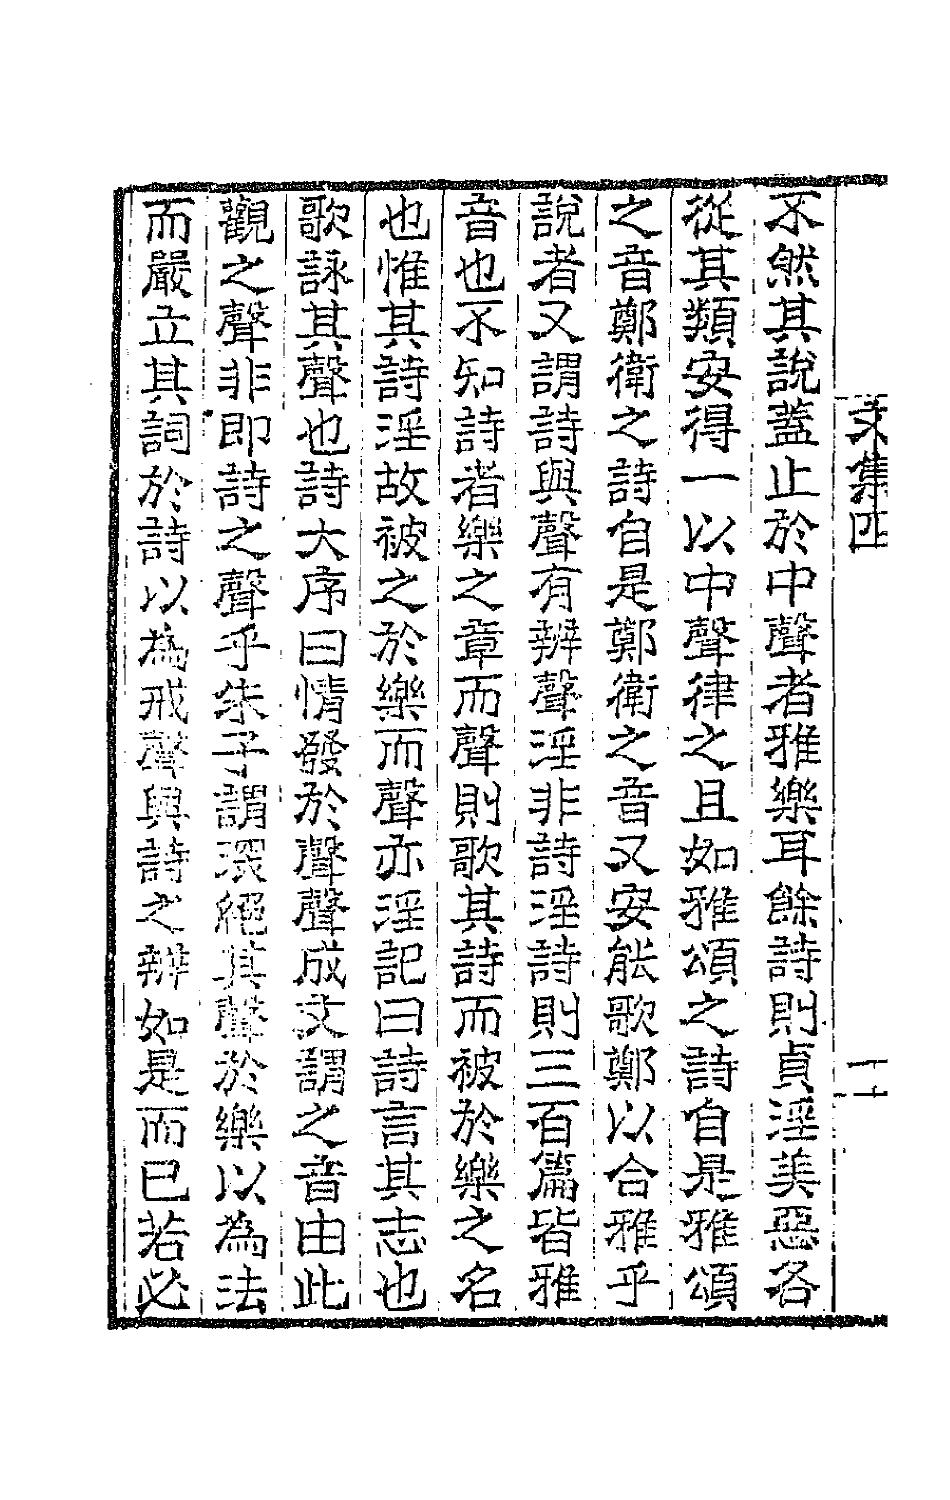 文集四
十十
不然其說蓋止於中聲者雅樂耳餘詩則貞淫美惡各
從其類安得一以中聲律之且如雅頌之詩自是雅頌
之音鄭衛之詩自是鄭衛之音又安能歌鄭以合雅乎
說者又謂詩與聲有辨聲淫非詩淫詩則三百篇皆雅
音也不知詩者樂之章而聲則歌其詩而被於樂之名
也惟其詩淫故被之於樂而聲亦淫記曰詩言其志也
歌詠其聲也詩大序曰情發於聲聲成文謂之音由此
觀之聲非即詩之聲乎朱子謂深絕其聲於樂以為法
而嚴立其詞於詩以為戒聲與詩之辨如是而已若必